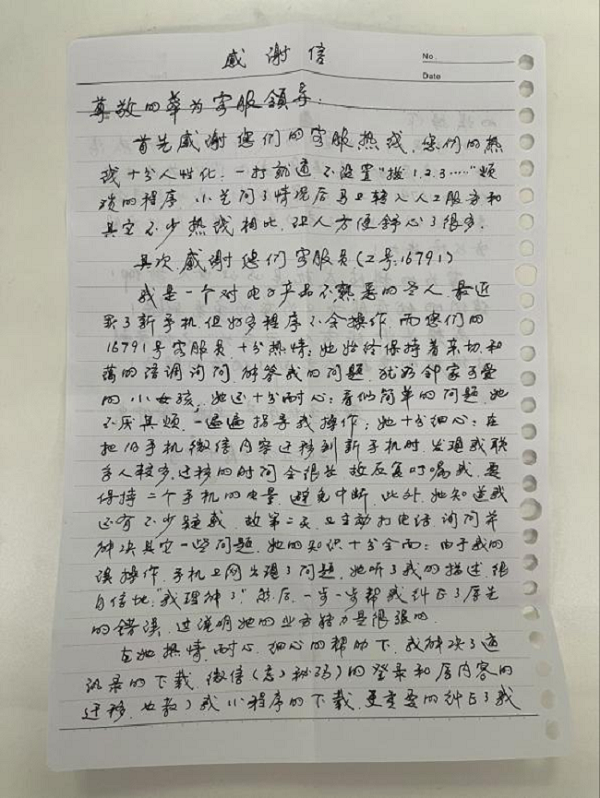 感谢信
No.
Date
尊敬的华为客服领导:
首先感谢您们的客服热线,您们的热
线十分人性化,一打就通不设置"拨1.2.3……"烦
琐的程序,小艺问了情况后马上转入人工服务和
其它不少热线相比,让人方便舒心了很多。
其次,感谢您们客服员(工号:16791)
我是一个对电子产品不熟悉的老人,最近
买了新手机,但好多程序不会操作,而您们的
16791号客服员,十分热情:她始终保持着亲切、和
蔼的语调询问、解答我的问题,犹如邻家可爱
的小女孩,她还十分耐心:看似简单的问题,她
不厌其烦,一遍遍指导我操作;她十分细心:在
把旧手机微信内容迁移到新手机时,发现我联
系人较多,迁移的时间会很长,故反复叮嘱我,要
保持二个手机的电量,避免中断,此外,她知道我
还有不少疑惑,故第二天又主动打电话,询问并
解决其它一些问题,她的知识十分全面:由于我的
误操作,手机上网出现了问题,她听了我的描述,很
自信地:"我理解了",然后,一步一步帮我纠正了原先
的错误,这说明她的业务能力是很强的。
在她热情、耐心、细心的帮助下,我解决了通
讯录的下载,微信(忘)秘码)的登录和原内容的
迁移,也教了我小程序的下载,更重要的纠正了我